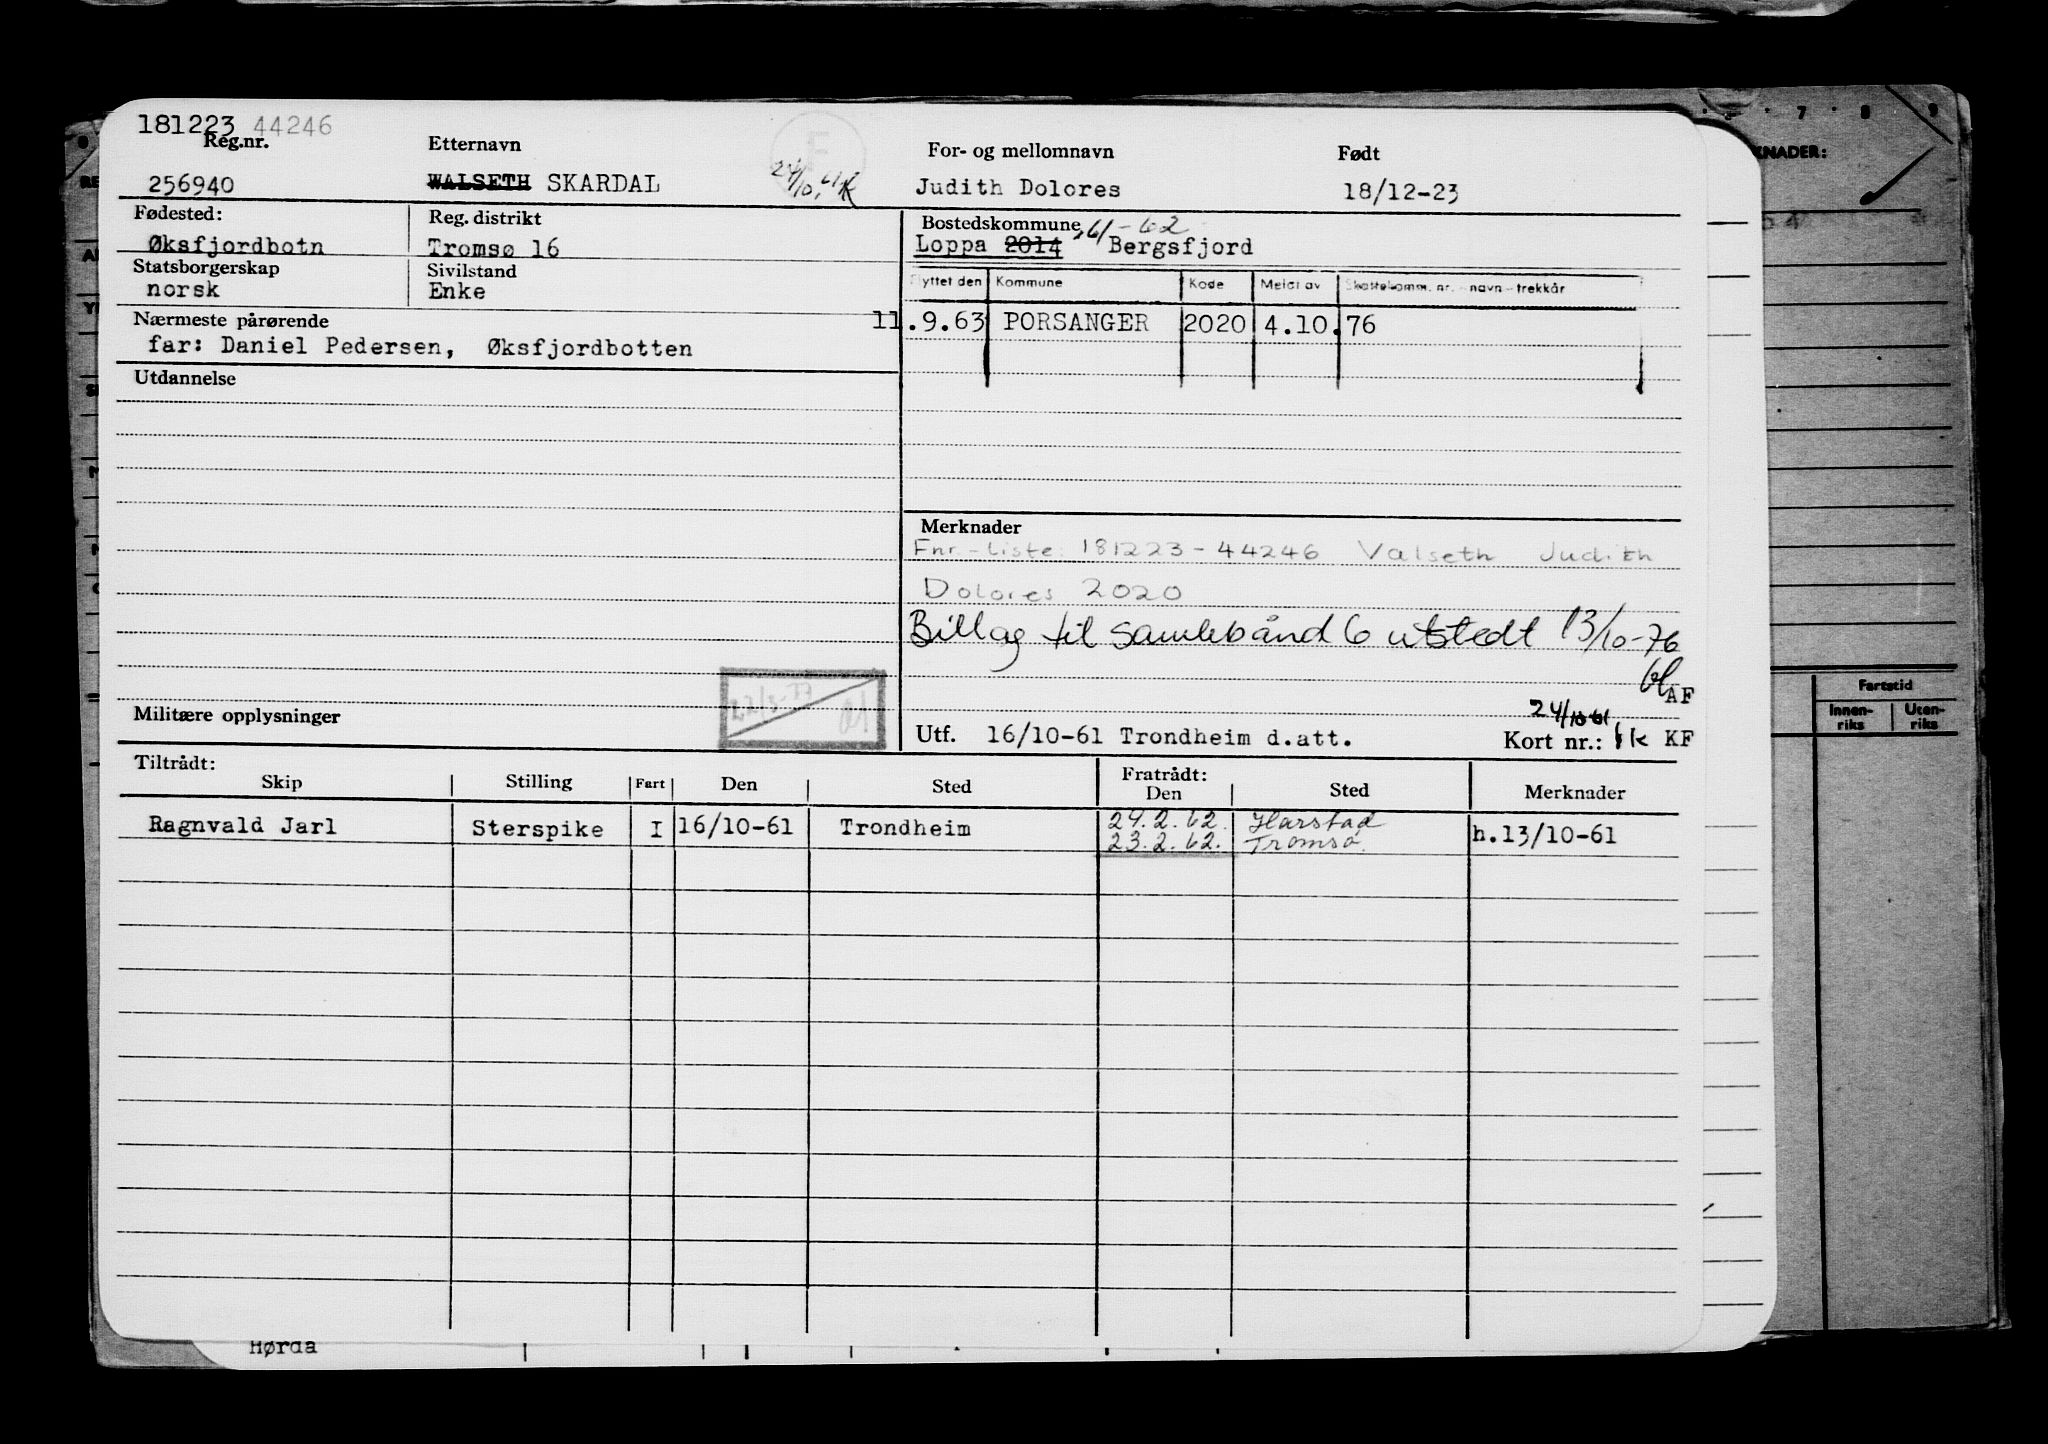 181223 44246
Reg.nr. Etternavn For- og mellomnavn Født
256940 WALSETH SKARDAL 24/10.61 Judith Dolores 18/12-23
Fødested: Reg. distrikt Bostedskommune 61-62
Øksfjordbotn Tromsø 16 Loppa 2014 Bergsfjord
Statsborgerskap Sivilstand
norsk Enke
Flyttet den Kommune Kode Meldt av Skattekomm. nr. - navn - trekkår
11.9.63 PORSANGER 2020 4.10.76
Nærmeste pårørende
far: Daniel Pedersen, Øksfjordbotten
Utdannelse
Merknader
Fnr.-liste: 181223-44246 Valseth Judith
Dolores 2020
Billag til samlebånd 6 utstedt 13/10-76
AF
Militære opplysninger
24/10-61
Utf. 16/10-61 Trondheim d.att. Kort nr.: KF
Tiltrådt: Fratrådt:
Skip Stilling Fart Den Sted Den Sted Merknader
Ragnvald Jarl Sterspike I 16/10-61 Trondheim 24.2.62. Harstad h.13/10-61
23.2.62. Tromsø.
Hørda
7 8 9
KNADER:
Fartstid
Innen-riks Uten-riks